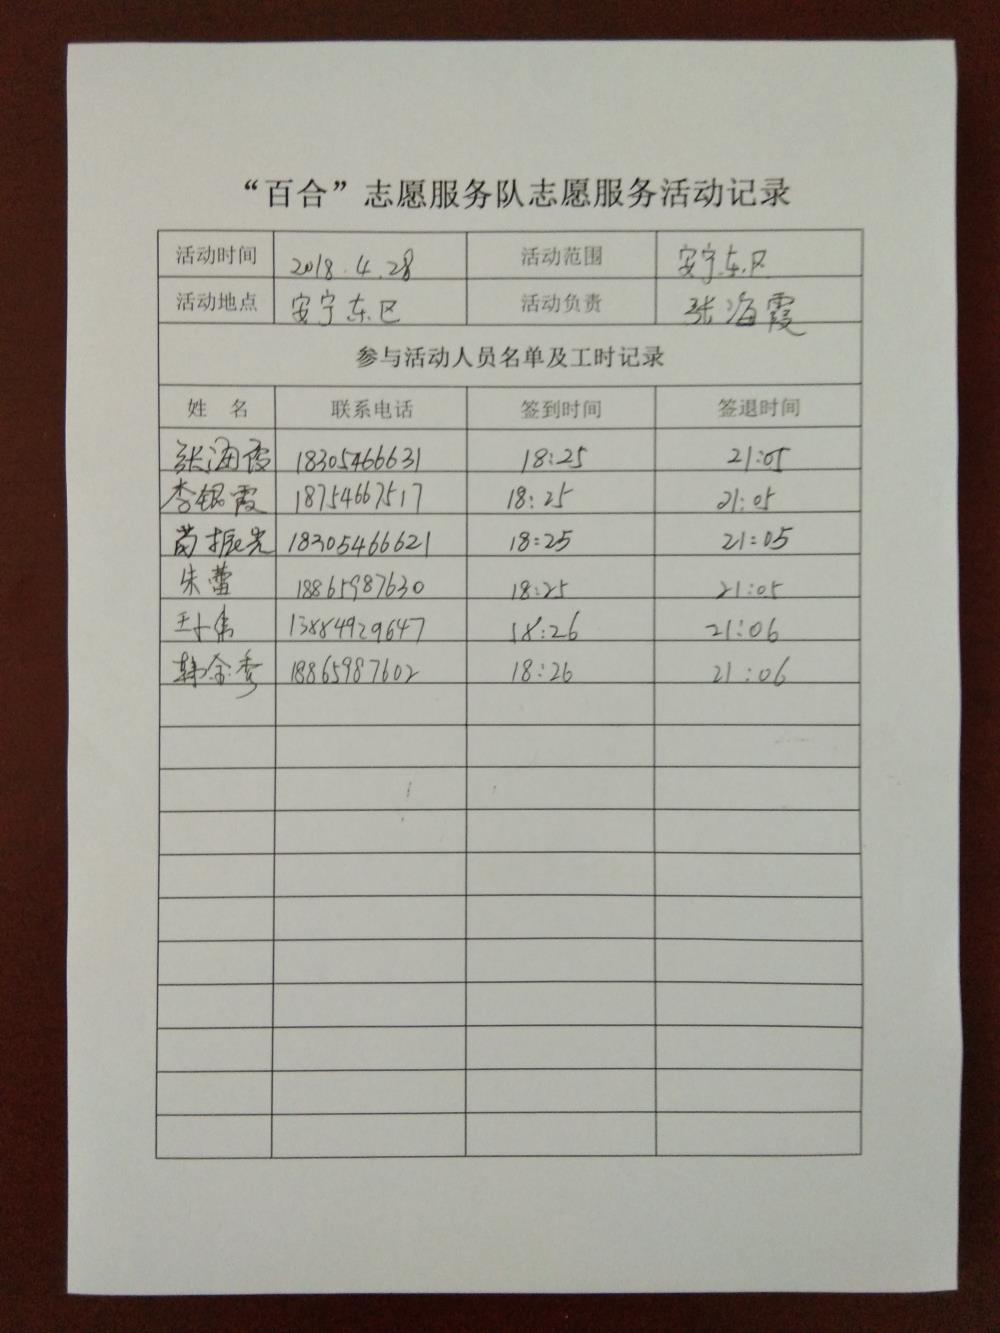 “百合”志愿服务队志愿服务活动记录
活动时间 2018.4.28 活动范围 安宁东区
活动地点 安宁东区 活动负责 张海霞
参与活动人员名单及工时记录
姓 名 联系电话 签到时间 签退时间
张海霞 18305466631 18:25 21:05
李银霞 18754667517 18:25 21:05
苗振光 18305466621 18:25 21:05
朱蕾 18865987630 18:25 21:05
13884929647 18:26 21:06
韩金秀 18865987602 18:26 21:06